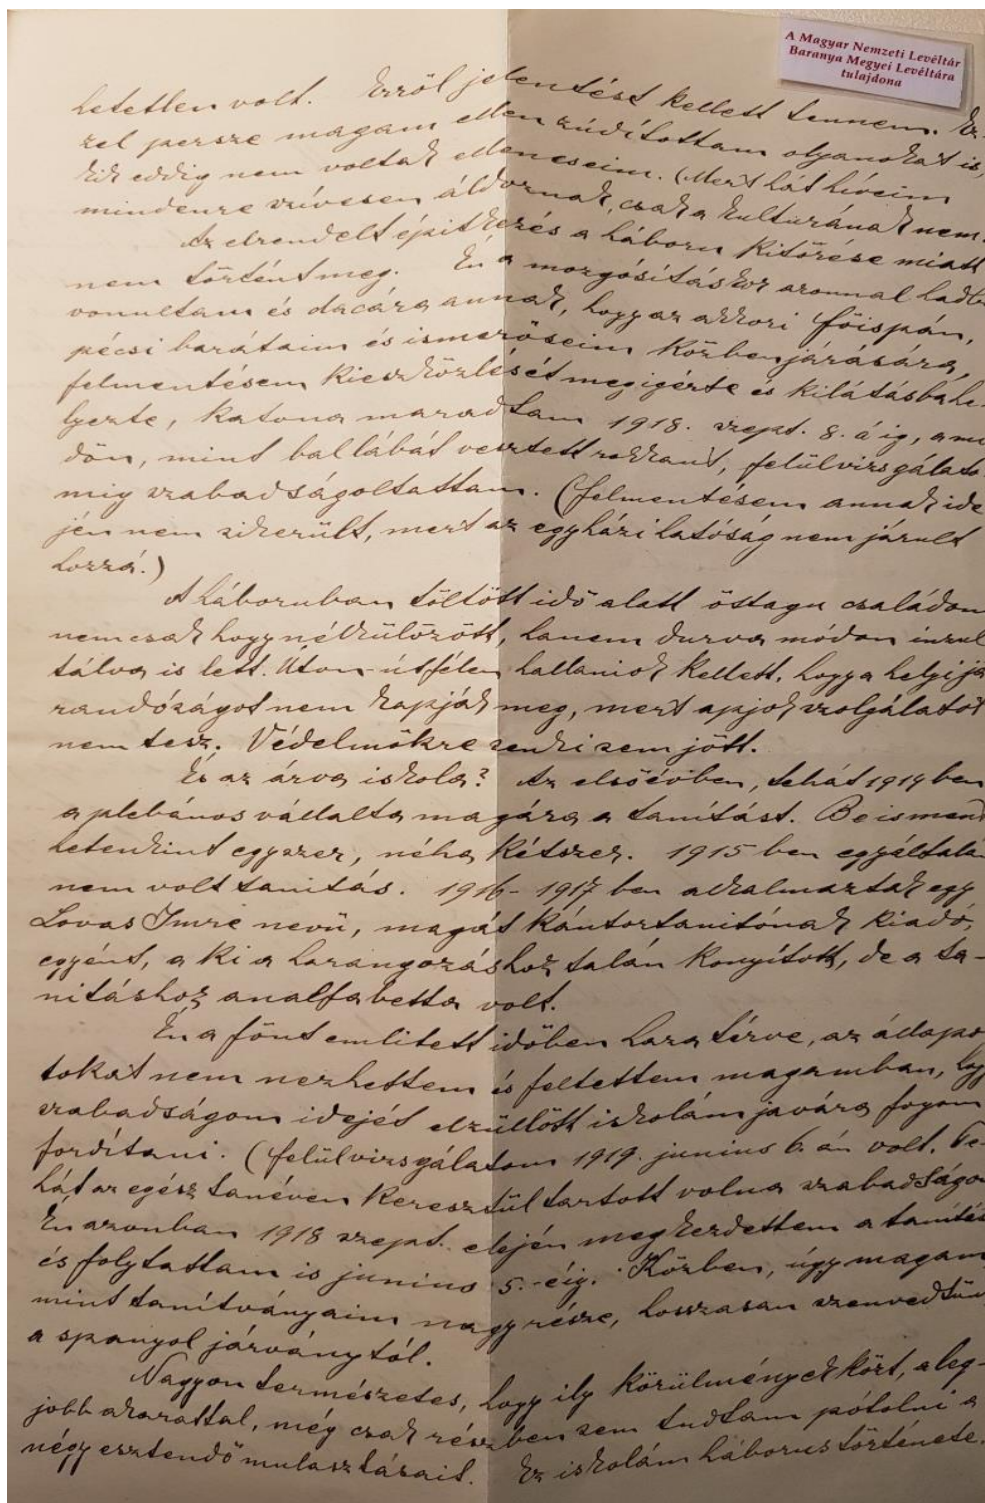 A Magyar Nemzeti Levéltár
Baranya Megyei Levéltára
tulajdona
hetetlen volt. Erről jelentést kellett tennem. Ez-
zel persze magam ellen zúdítottam olyanokat is,
kik eddig nem voltak elleneseim. (Mert hát híveim
mindenre szívesen áldoznak, csak a kulturának nem.
Az elrendelt épitkezés a háboru kitörése miatt
nem történt meg. Én a mozgósításkor azonnal hadba
vonultam és dacára annak, hogy az akkori főispán,
pécsi barátaim és ismerőseim közbenjárására,
felmentésem kieszközlését megigérte és kilátásba he-
lyezte, katona maradtam 1918. szept. 8. áig, ami
dőn, mint ballábát vesztett rokkant, felülvizsgálato
mig szabadságoltattam. (Felmentésem annak ide
jén nem sikerült, mert az egyházi hatóság nem járult
hozzá.)
A háboruban töltött idő alatt östagu családom
nemcsak hogy nélkülözött, hanem durva módon inzul
tálva is lett. Úton-útfélen hallaniok kellett, hogy a helyi ja
randóságot nem kapják meg, mert apjok szolgálatot
nem tesz. Védelmökre senki sem jött.
És az árva iskola? Az első évben, tehát 1914 ben
a plebános vállalta magára a tanítást. Beisment
hetenkint egyszer, néha kétszer. 1915 ben egyáltalá
nem volt tanitás. 1916-1917 ben alkalmaztak egy
Lovas Imre nevü, magát kántortanitónak kiadó,
egyént, a ki a harangozáshoz talán konyított, de a ta-
nitáshoz analfabetta volt.
Én a fönt emlitett időben haza térve, az állapo
tokat nem nézhettem és feltettem magamban, hogy
szabadságom idejét elzüllött iskolám javára fogom
fordítani. (Felülvizsgálatom 1919. junius 6. án volt. Te-
hát az egész tanéven keresztül tartott volna szabadságo
Én azonban 1918 szept. elején megkezdettem a tanitás
és folytattam is junius 5.-éig. Közben, úgy magam
mint tanítványaim nagy része, hosszasan szenvedtün
a spanyol járványtól.
Nagyon természetes, hogy ily körülmények közt, a leg-
jobb akarattal, még csak részben sem tudtam pótolni a
négy esztendő mulasztásait. Ez iskolám háborus története.